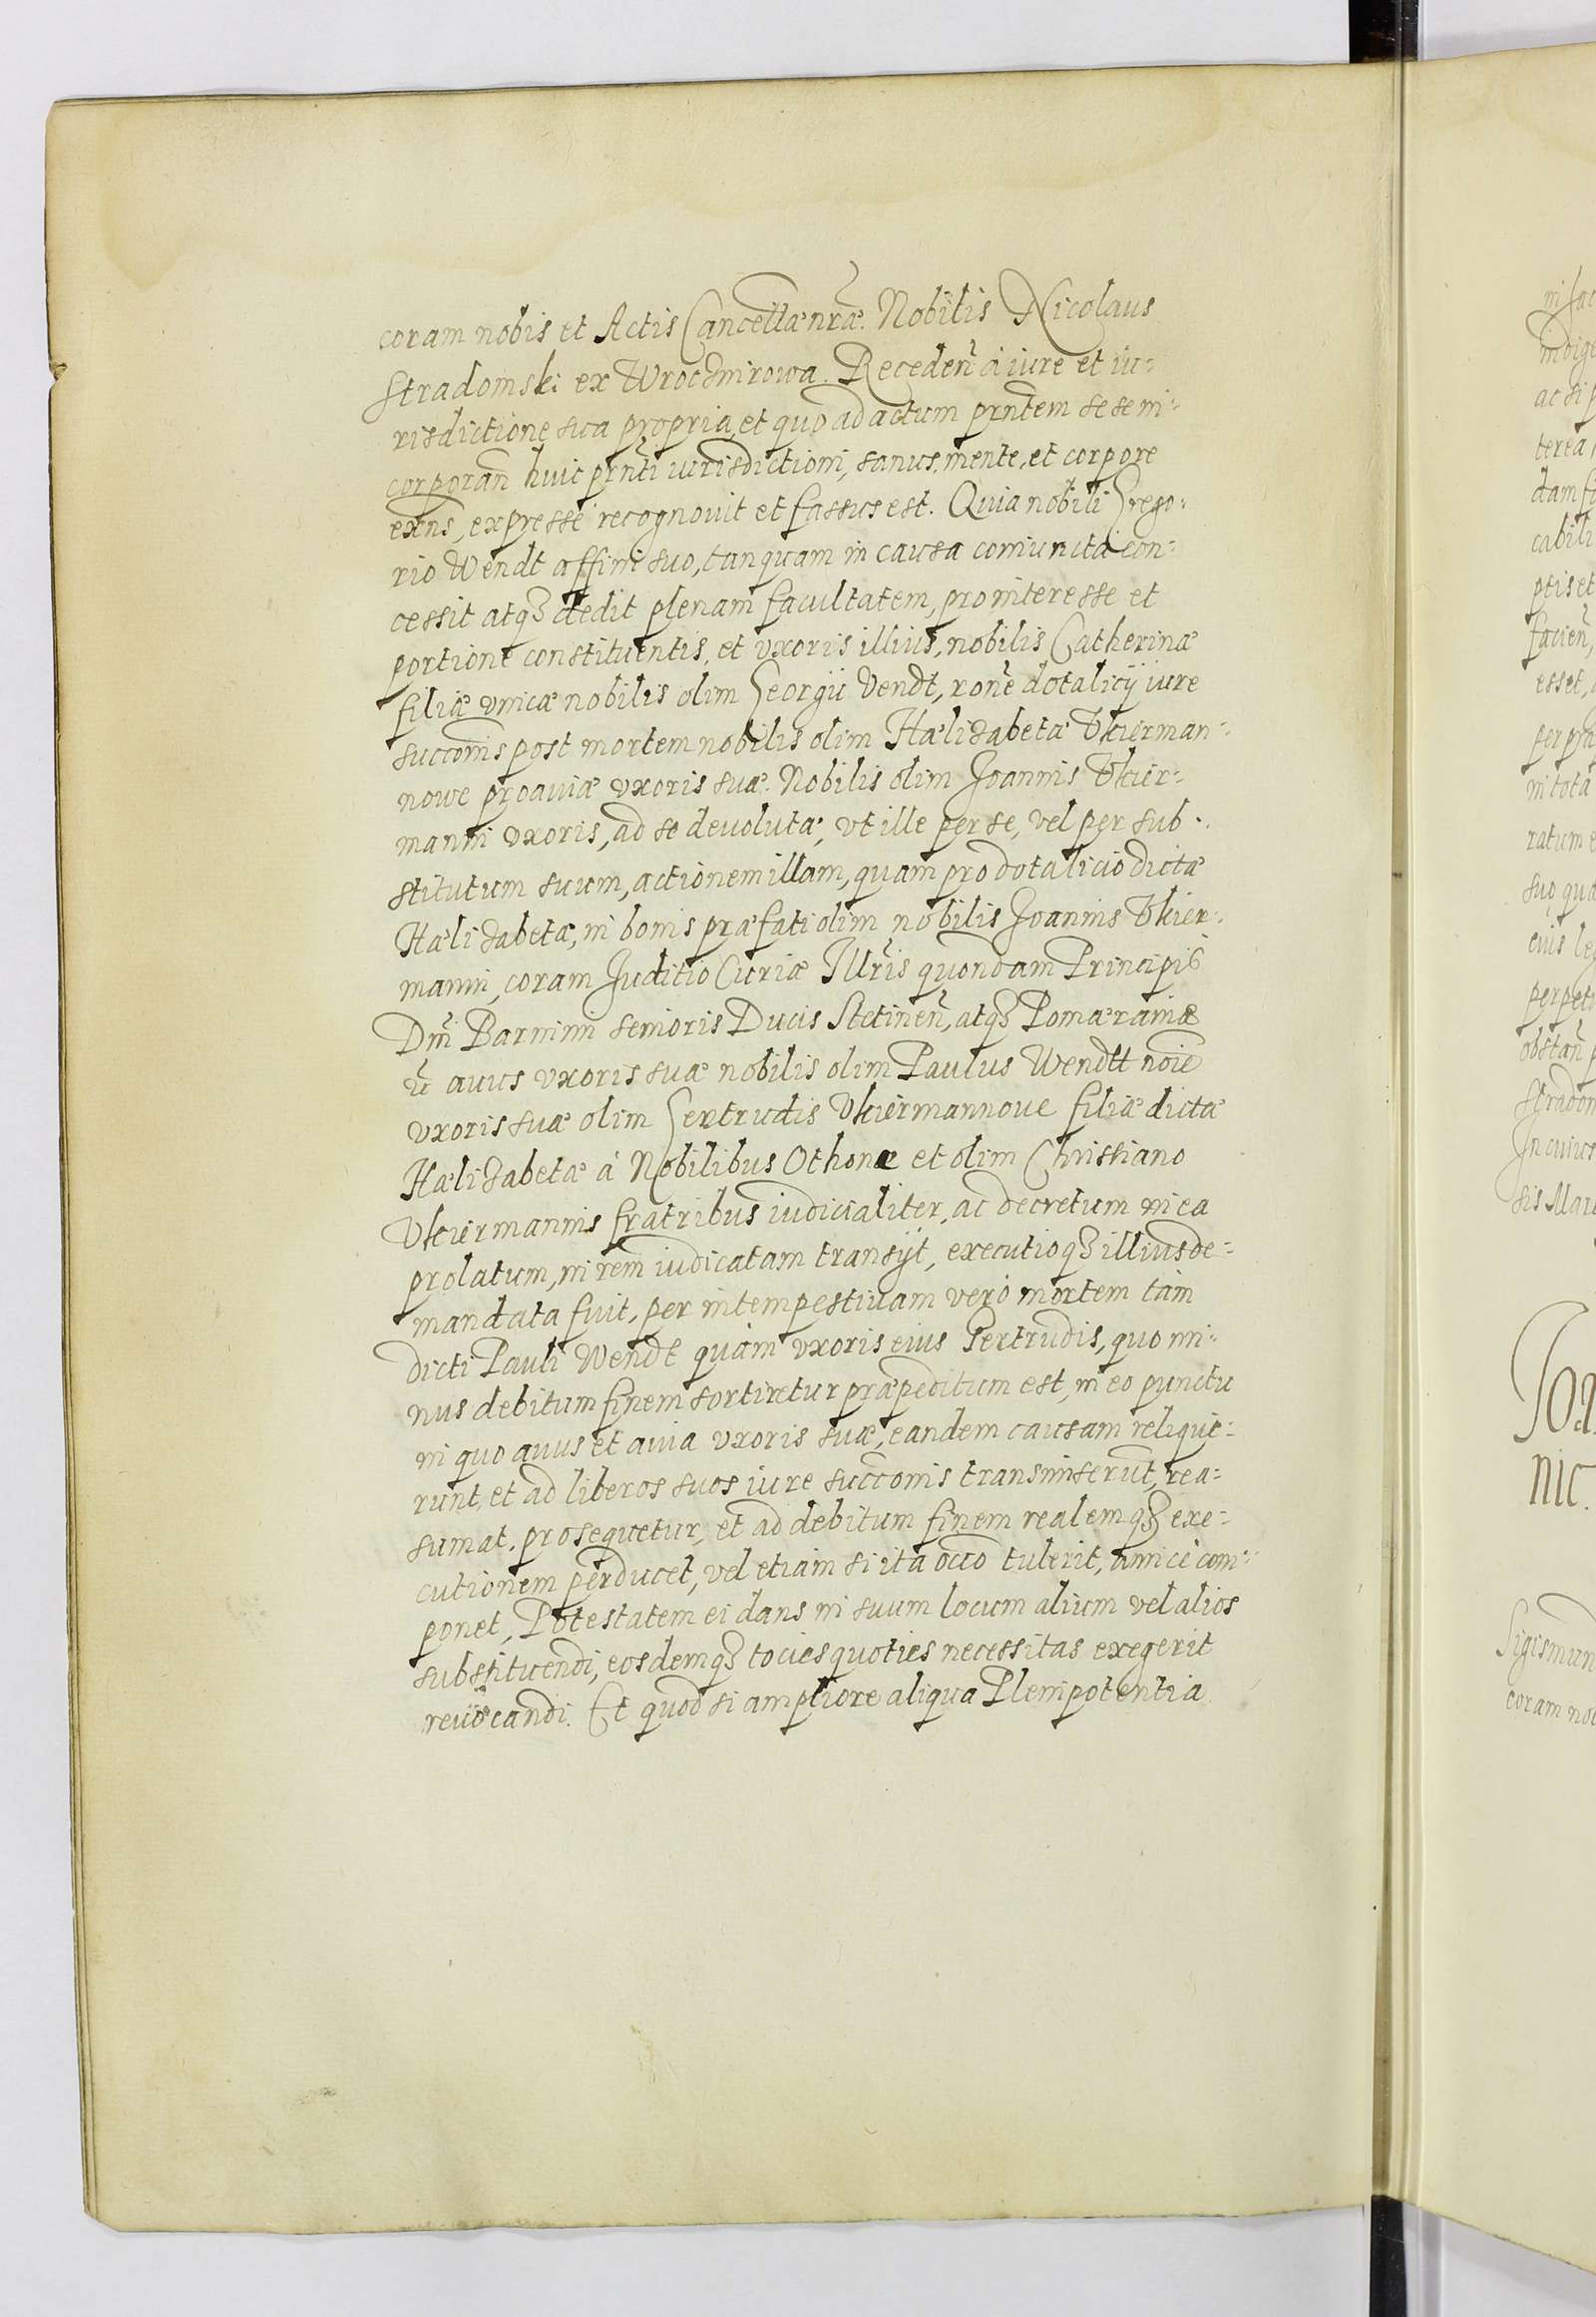 coram nobis et Actis Cancellæ nr̃æ. Nobilis Nicolaus
Stradomski ex Wrocimirowa. Receden̄ à iure et iu-
risdictione sua propria, et quo ad actum prñtem sese in-
corporan̄ huic prñti iurisdictioni, sanus, mente, et corpore
exñs, expresse recognouit et fassus est. Quia nobili Grego-
rio Wendt affini suo, tanquam in causa coniuncta con-
cessit atqȝ dedit plenam facultatem, pro interesse et
portione constituentis, et vxoris illius, nobilis Catherinæ
filiæ vnicæ nobilis olim Georgii Vendt, ron̄e dotalicij iure
succonis post mortem nobilis olim Hælizabetæ Vkierman-
nowe proauiæ vxoris suæ. Nobilis olim Joannis Vkier-
manni vxoris, ad se deuolutæ, vt ille per se, vel per sub-
stitutum suum, actionem illam, quam pro dotalicio dictæ
Hælizabetæ, in bonis præfati olim nobilis Joannis Vkier-
manni, coram Juditio Curiæ Illr̃is quondam Principis
Dn̄i Barnimi senioris Ducis Stetinen̄, atqȝ Pomæraniæ
auus vxoris suæ nobilis olim Paulus Wendtt noīe
vxoris suæ olim Gertrudis Vkiermannoue filiæ dictæ
Hælizabetæ à Nobilibus Othonæ et olim Christiano
Vkiermannis fratribus iudicialiter, ac decretum in ea
prolatum, in rem iudicatam transijt, executioqȝ illius de-
mandata fuit, per intempestiuam verò mortem tàm
dicti Pauli Wendt quàm vxoris eius Gertrudis, quo mi-
nus debitum finem sortiretur præpeditum est, in eo punctu
in quo auus et auia vxoris suæ, eandem causam relique-
runt, et ad liberos suos iure succonis transmiserūt, rea-
sumat, prosequetur, et ad debitum finem realemqȝ exe-
cutionem perducet, vel etiam si ita occō tulerit, amicè com-
ponet, Potestatem ei dans in suum locum alium vel alios
substituendi, eosdemqȝ tocies quoties necessitas exegerit
reuocandi. Et quod si ampliore aliqua Plenipotentia